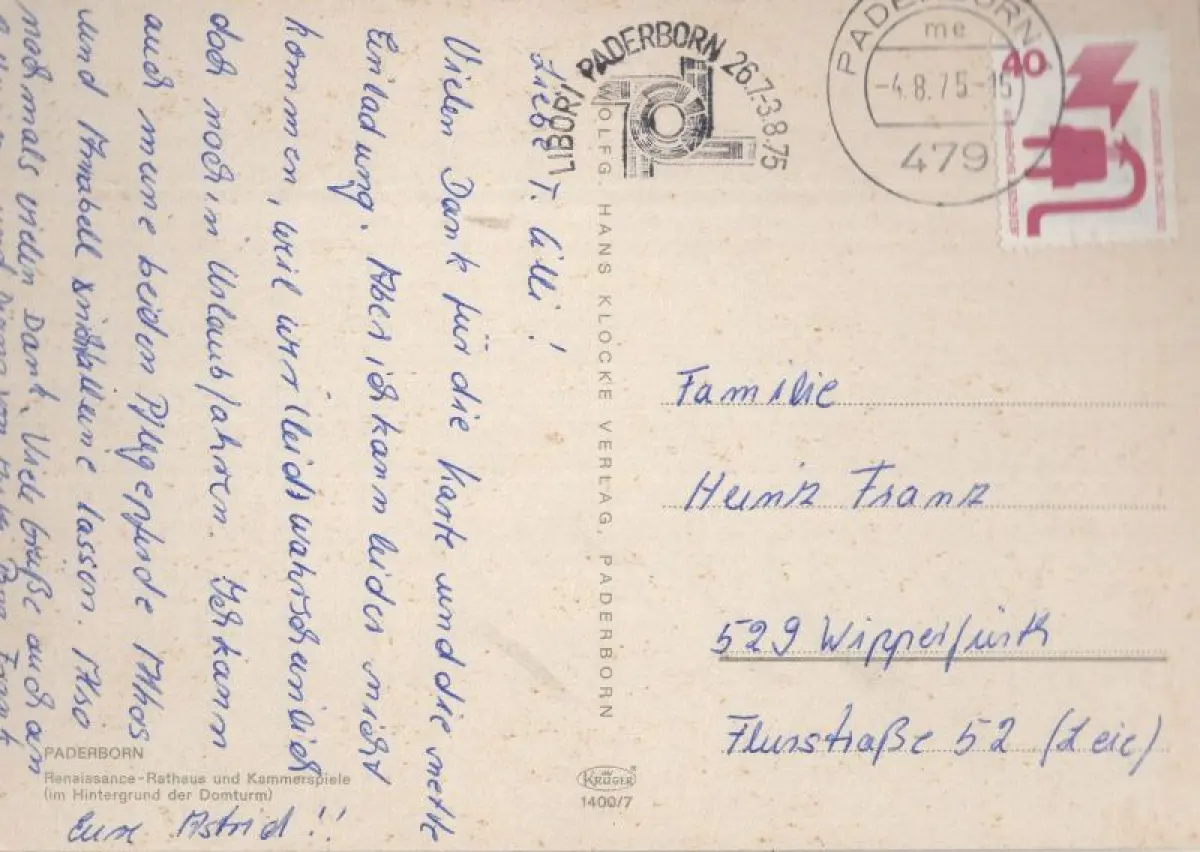 Liebe T. Lilli!
Vielen Dank für die Karte und die nette
Einladung. Aber ich kann leider nicht
kommen, weil wir leider wahrscheinlich
doch noch in Urlaub fahren. Ich kann
auch meine beiden Pflegerfinde Athos
und Anabell nicht alleine lassen. Also
nochmals vielen Dank. Viele Grüße auch an
und von
Eure Astrid!!
PADERBORN
Renaissance-Rathaus und Kammerspiele
(im Hintergrund der Domturm)
WOLFG. HANS KLOCKE VERLAG, PADERBORN
KRÜGER
1400/7
LIBORI PADERBORN 26.7.-3.8.75
PADERBORN
me
-4.8.75-15
479
40
Familie
Heinz Franz
529 Wipperfürth
Flurstraße 52 (Leie)